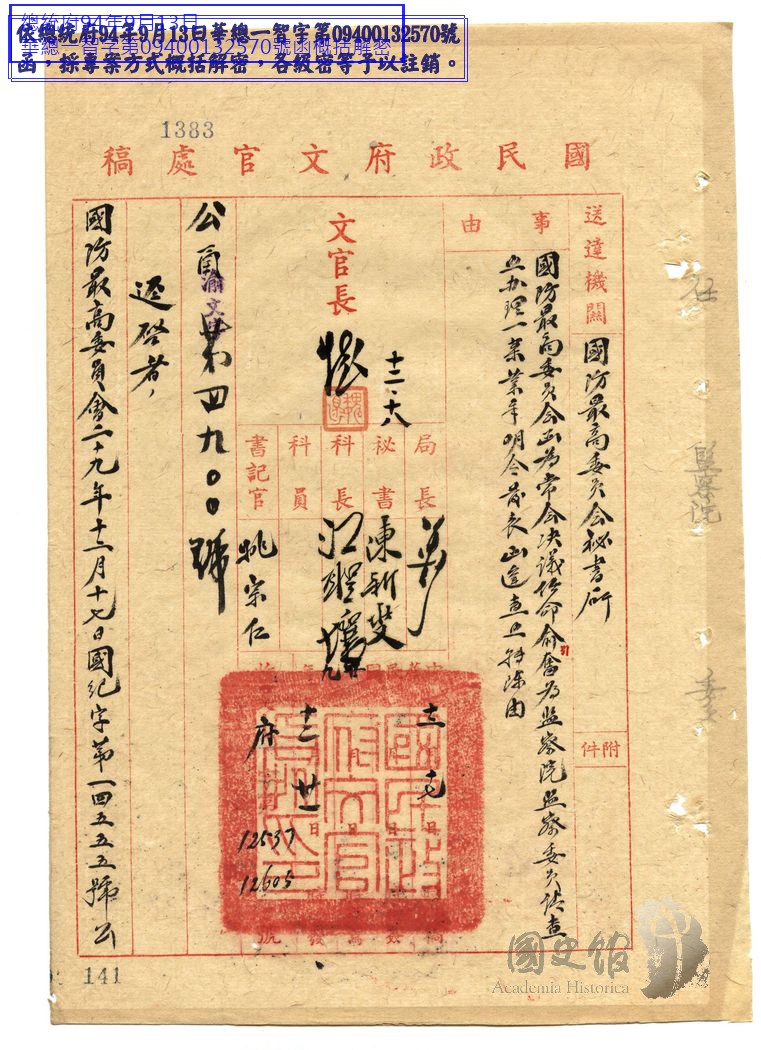 總統府94年9月13日
華總一智字第09400132570號函概括解密
依總統府94年9月13日華總一智字第09400132570號
函，採專案方式概括解密，各級密等予以註銷。
1383
國民政府文官處稿
送達機關
國防最高委員会秘書所
附件
事由
國防最高委員会函為常会决議任命俞奮為监察院监察委員请查
照办理一案業手明令
文官長
十二、十八
局長
秘書
陳新燮
科長
科員
書記官
姚宗仁
國民政府文官處印
十二
十二 廿一
府
12537
12605
公函
渝文
第四九〇〇號
逕啓者，
國防最高委員會二十九年十二月十七日國紀字第一四五五五號公
141
監察院
國史館
Academia Historica